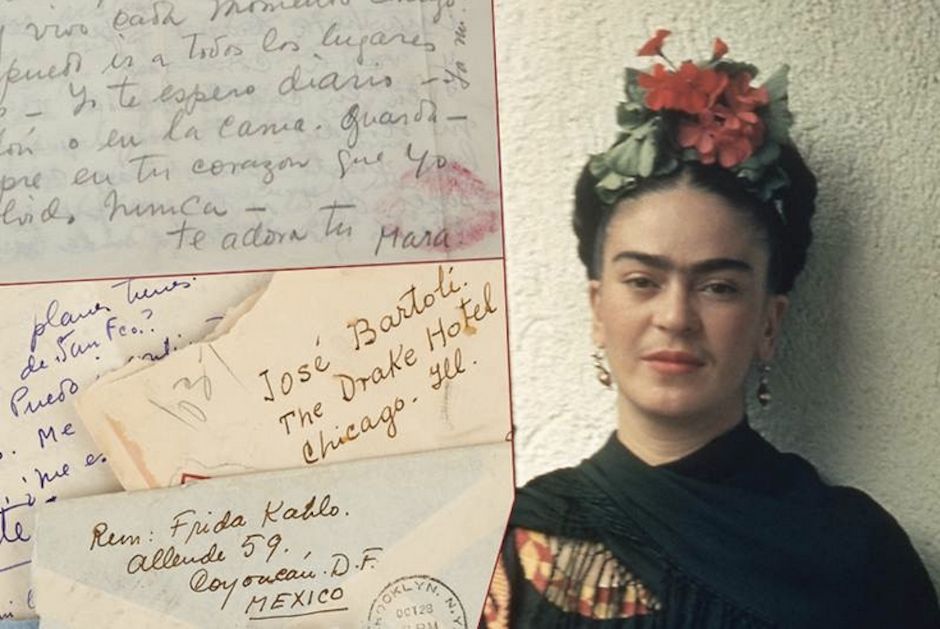 vivo cada momento
puedo ir a todos los lugares
Yo te espero diario —
o en la cama. Guarda—
pre en tu corazon que Yo
lvido nunca —
te adora tu Mara.
planes tienes.
de San Fco.?
Puedo
Me
me
te
José Bartolí.
The Drake Hotel
Chicago. Ill.
Rem: Frida Kahlo.
allende 59.
Coyoacán. D.F.
MEXICO
OOKLYN. N.Y.
OCT 28
PM